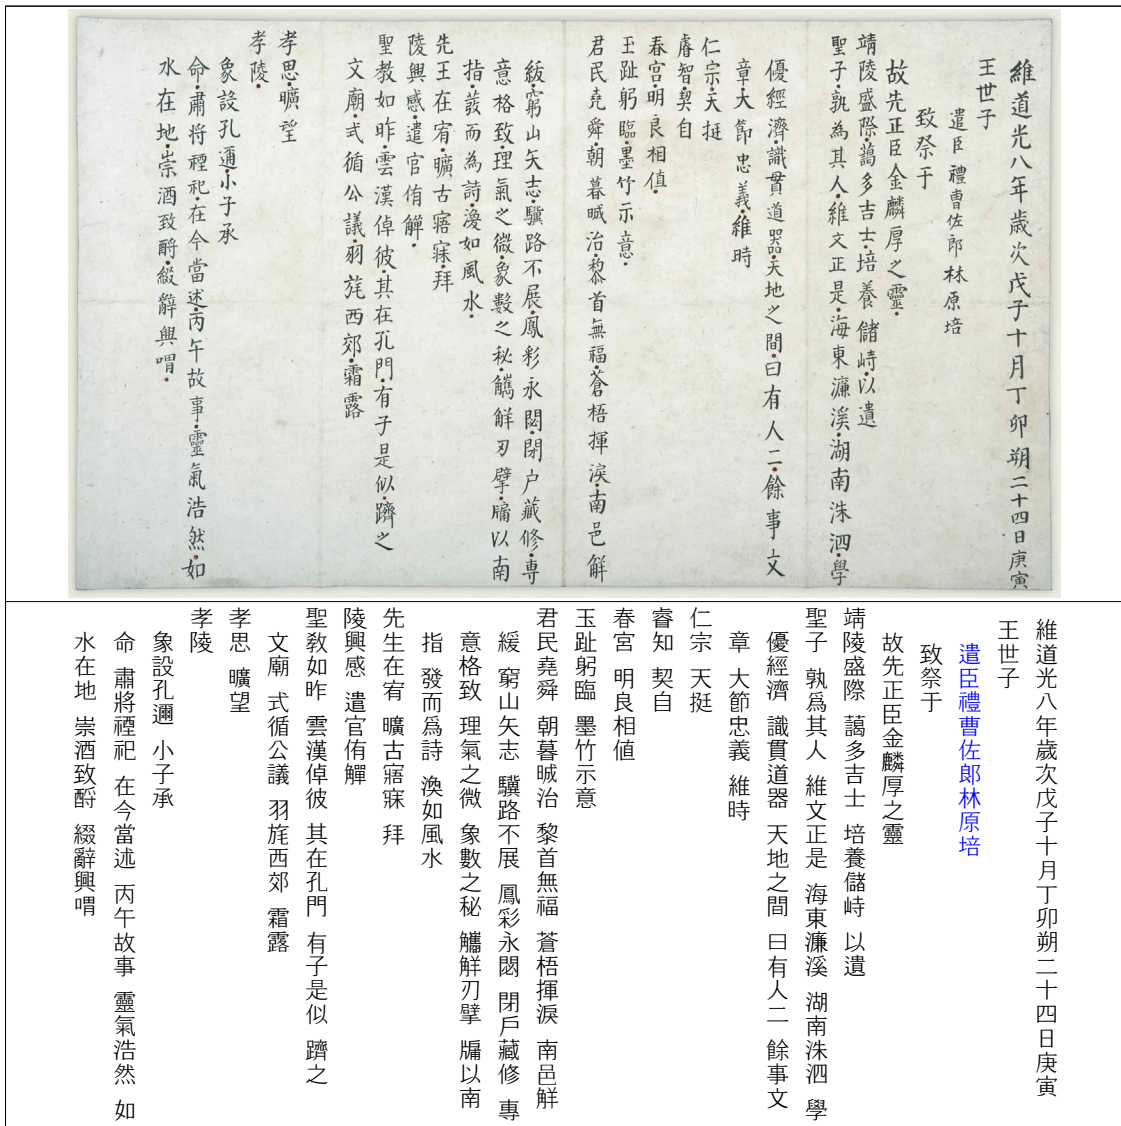 維道光八年歲次戊子十月丁卯朔二十四日庚寅
王世子
遣臣禮曹佐郎林原培
致祭于
故先正臣金麟厚之靈
靖陵盛際藹多吉士培養儲峙以遺
聖子孰為其人維文正是海東濂溪湖南洙泗學
優經濟識貫道器天地之間曰有人二餘事文
章大節忠義維時
仁宗天挺
睿智契自
春宮明良相值
玉趾躬臨墨竹示意
君民堯舜朝暮晠治黎首無福蒼梧揮淚南邑觧
紱窮山矢志驥路不展鳳彩永閟閉户藏修專
意格致理氣之微象數之秘觿觧刃擘牖以南
指發而為詩渙如風水
先王在宥曠古寤寐拜
陵興感遣官侑觶
聖教如昨雲漢倬彼其在孔門有子是似躋之
文廟式循公議羽旄西郊霜露
孝思曠望
孝陵
象設孔邇小子承
命肅將禋祀在今當述丙午故事靈氣浩然如
水在地崇酒致酹綴辭興喟
維道光八年歲次戊子十月丁卯朔二十四日庚寅
王世子
遣臣禮曹佐郞林原培
致祭于
故先正臣金麟厚之靈
靖陵盛際 藹多吉士 培養儲峙 以遺
聖子 孰爲其人 維文正是 海東濂溪 湖南洙泗 學
優經濟 識貫道器 天地之間 曰有人二 餘事文
章 大節忠義 維時
仁宗 天挺
睿知 契自
春宮 明良相値
玉趾躬臨 墨竹示意
君民堯舜 朝暮晠治 黎首無福 蒼梧揮淚 南邑觧
緩 窮山矢志 驥路不展 鳳彩永閟 閉戶藏修 專
意格致 理氣之微 象數之秘 觿觧刃擘 牖以南
指 發而爲詩 渙如風水
先生在宥 曠古寤寐 拜
陵興感 遣官侑觶
聖敎如昨 雲漢倬彼 其在孔門 有子是似 躋之
文廟 式循公議 羽旄西郊 霜露
孝思 曠望
孝陵
象設孔邇 小子承
命 肅將禋祀 在今當述 丙午故事 靈氣浩然 如
水在地 崇酒致酹 綴辭興喟